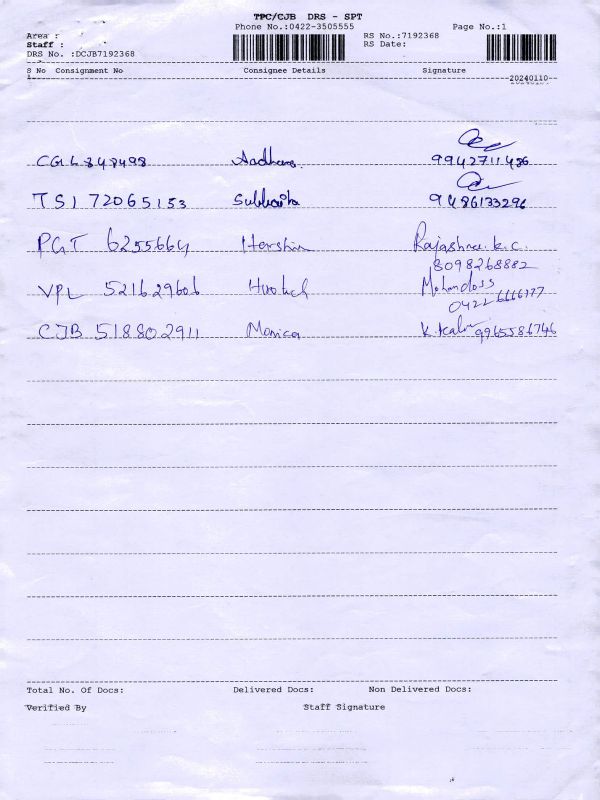 TPC/CJB DRS - SPT
Phone No.:0422-3505555 Page No.:1
Area :
Staff : RS No.:7192368
DRS No. :DCJB7192368 RS Date:
S No Consignment No Consignee Details Signature
20240110
CGL 848498 Aadhava 9942711486
TSI 72065153 9486133296
PGT 6255664 Harshin Rajashree.k.c.
8098268882
VPL 521629606 Mohandoss
0422 6666777
CJB 518802911 Monica 9965586746
Total No. Of Docs: Delivered Docs: Non Delivered Docs:
Verified By Staff Signature